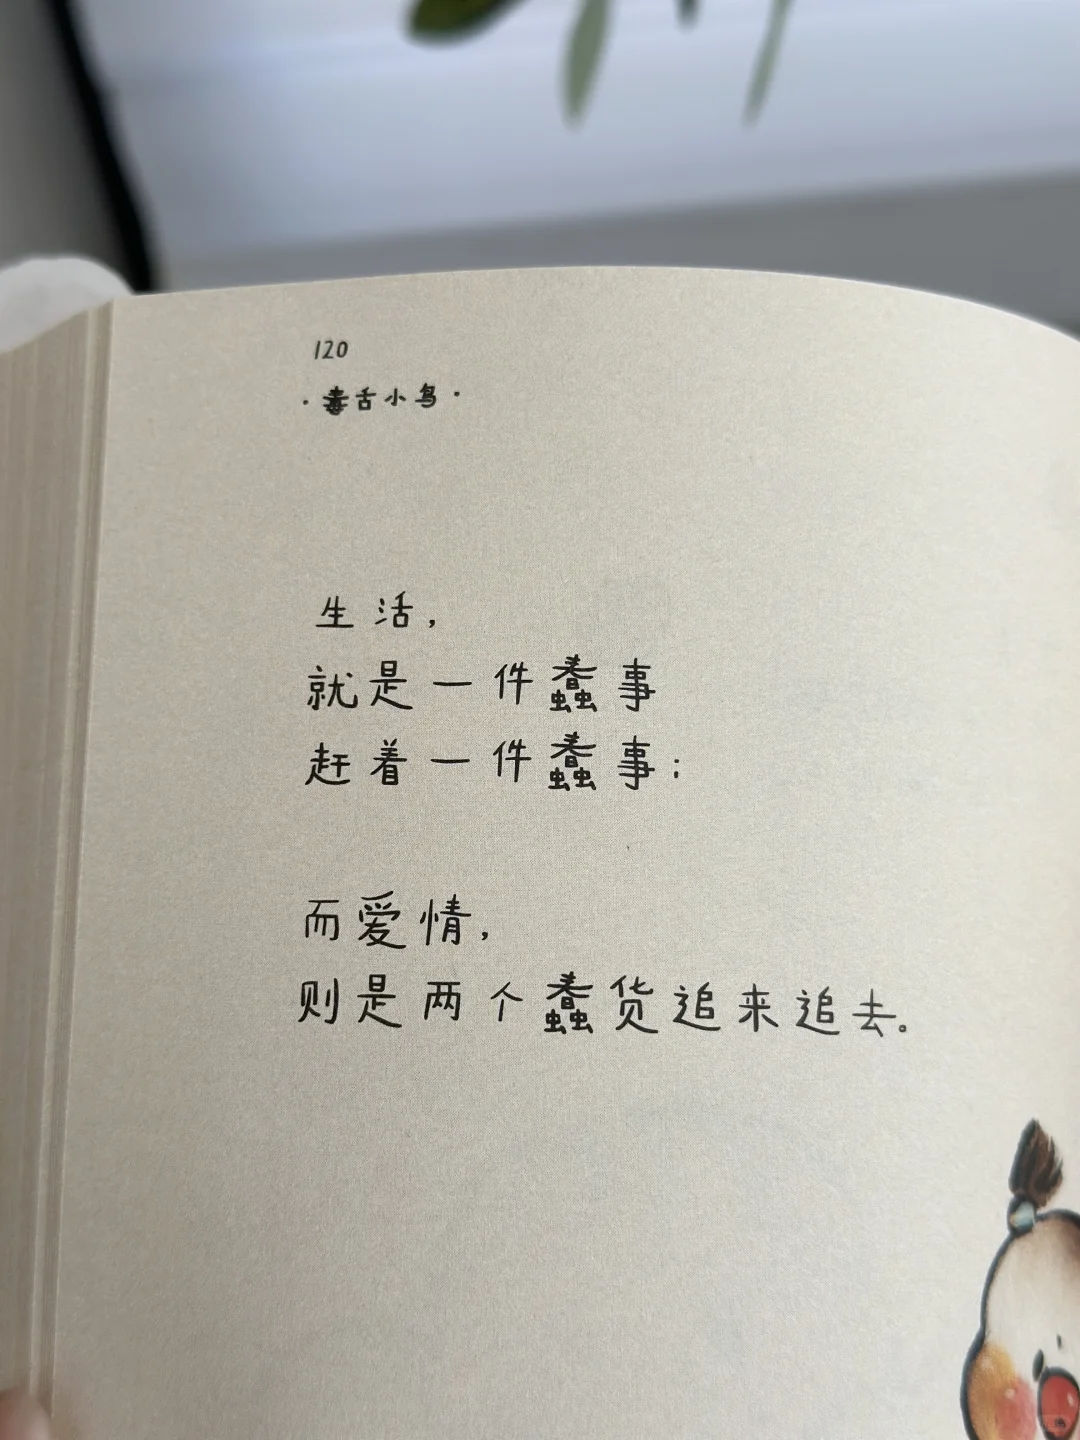 120
·毒舌小鸟·
生活，
就是一件蠢事
赶着一件蠢事；
而爱情，
则是两个蠢货追来追去。